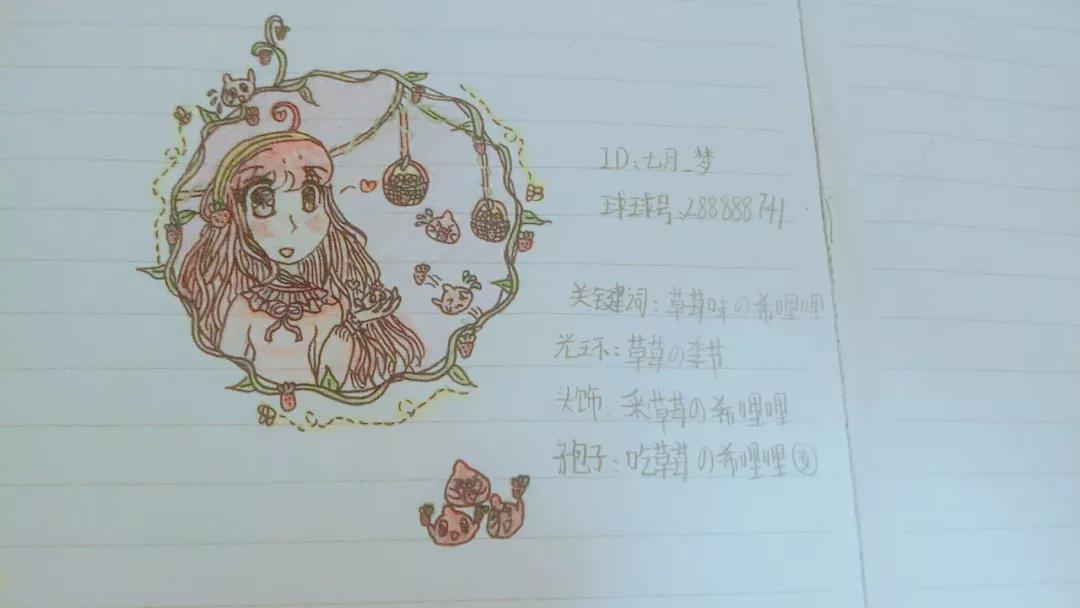 ID:七月_梦
球球号:288888741
关键词:草莓味の希哩哩
光环:草莓の季节
头饰:采草莓の希哩哩
孢子:吃草莓の希哩哩